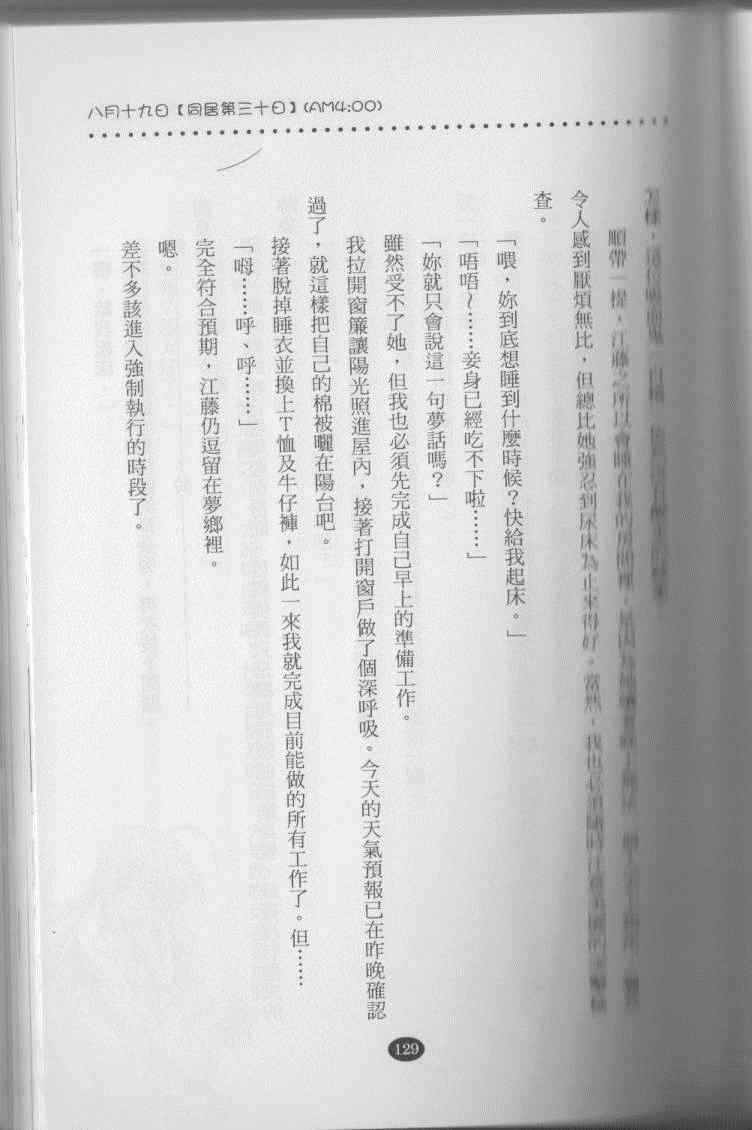 八月十九日【同居第三十日】(AM4:00)
順帶一提，江藤之所以會睡在我的房間裡，
令人感到厭煩無比，但總比她強忍到尿床為止來得好。當然，我也必須隨時注意
查。
「喂，妳到底想睡到什麼時候？快給我起床。」
「唔唔～……妾身已經吃不下啦……」
「妳就只會說這一句夢話嗎？」
雖然受不了她，但我也必須先完成自己早上的準備工作。
我拉開窗簾讓陽光照進屋內，接著打開窗戶做了個深呼吸。今天的天氣預報已在昨晚確認
過了，就這樣把自己的棉被曬在陽台吧。
接著脫掉睡衣並換上Ｔ恤及牛仔褲，如此一來我就完成目前能做的所有工作了。但……
「呣……呼、呼……」
完全符合預期，江藤仍逗留在夢鄉裡。
嗯。
差不多該進入強制執行的時段了。
129